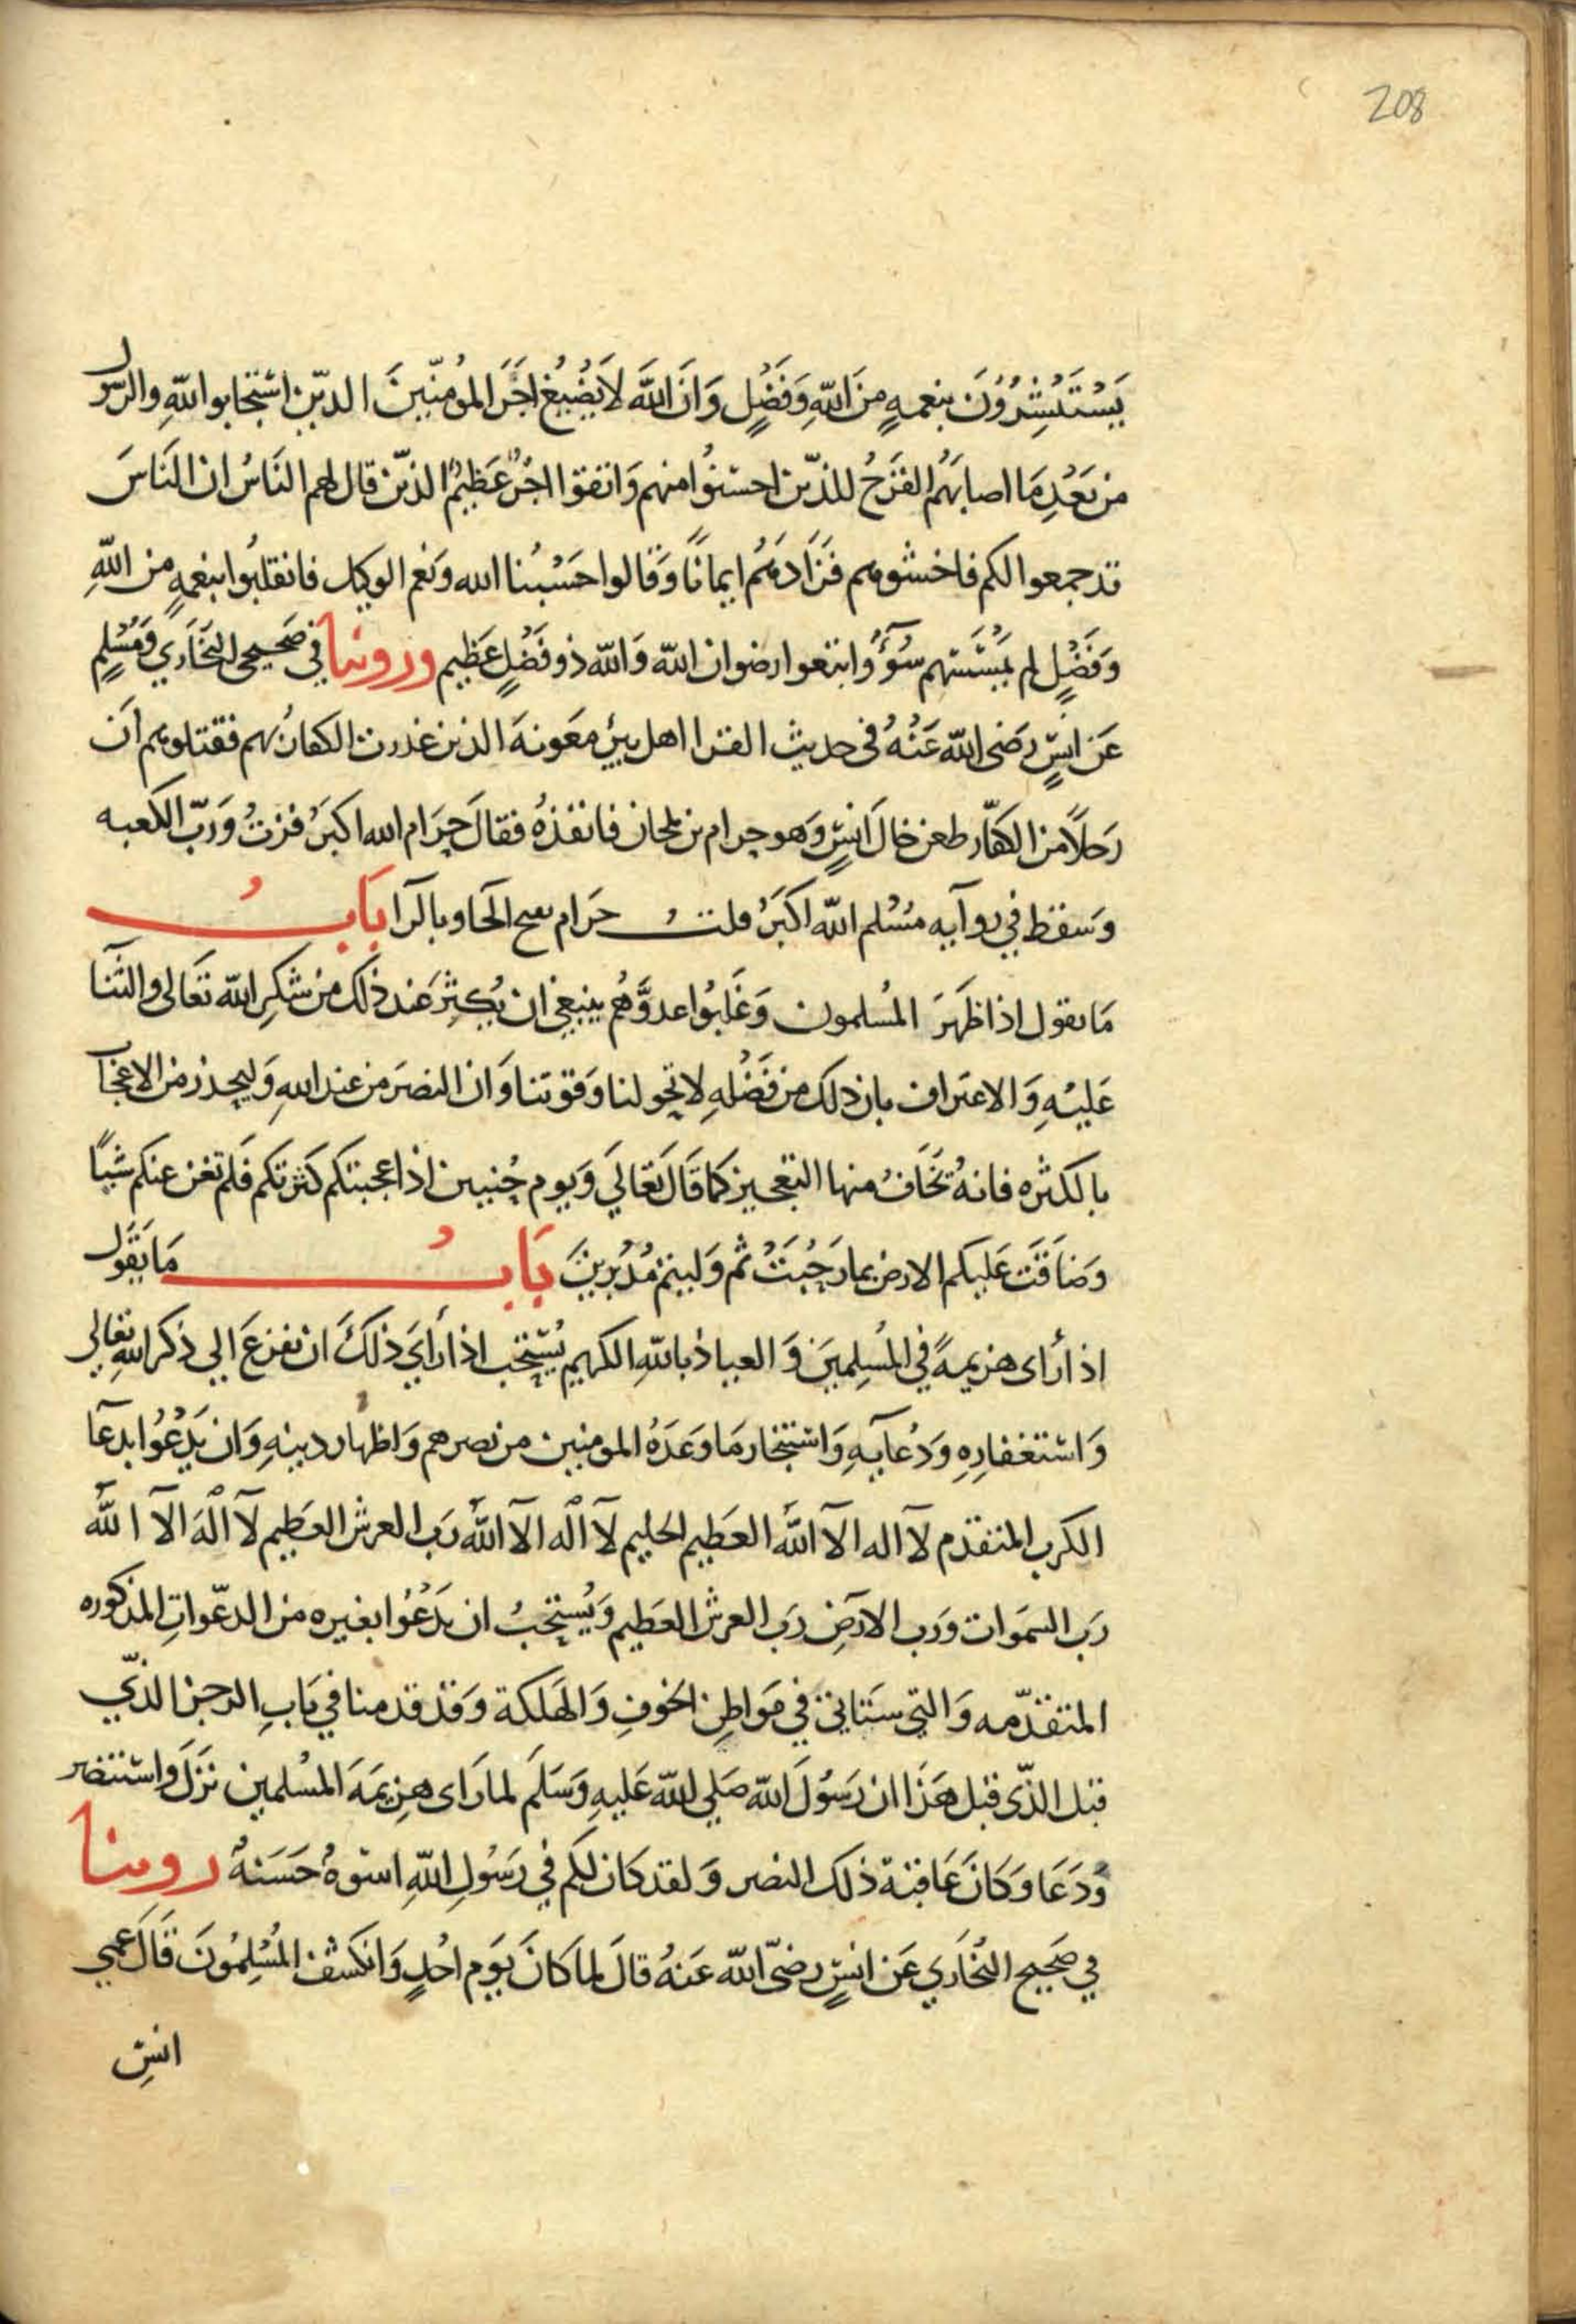 208
يَسْتَبْشِرُونَ بنعمهٍ مِنَ اللهِ وَفَضْلٍ وَانَ اللهَ لَا يُضِيْعُ اَجْرَ المُؤمنِينَ الذين استجابوا للهِ والرسول
من بَعْدِ مَا اصابَهُم القَرْحُ للذّين احسَنُوا منهم وَاتقوا اجْرٌ عَظِيمٌ الذّين قال لهم النَاسُ ان النَاسَ
قد جمعوا لكم فاخشوهم فَزَادَهُم ايمانًا وَقَالوا حَسْبُنا الله وَنعم الوكيل فانقلبُوا بنعمهٍ من اللهِ
وَفَضْلٍ لم يَمْسَسهم سُوْءٌ وابتغوا رضوان الله وَالله ذو فَضْلٍ عَظِيم وروينا في صَحيحى البُخَاري وَمُسْلمٍ
عَن انسٍ رَضى الله عَنْهُ في حديث القرا اهل بير مَعَونهَ الذين غدرت الكفارُ بهم فقتلوهم اَن
رَجلاً من الكفّار طعن خالَ انسٍ وَهو حرام بن ملحان فانفذهُ فقالَ حِرَام الله اكبَرُ فزتُ وَرَبّ الكعبه
وَسقط في روآيه مُسْلم الله اكبَرُ قلتُ حرَام بفتح الحَا وبالرآ بَابُ
مَا يقول اذا ظَهَرَ المُسلمون وَغَلبُوا عدوَّهُم ينبغي ان يُكثِرَ عند ذلك من شكرِ الله تعَالى والثنآ
عَليْهِ وَالاعتراف بان ذلك من فَضْلهِ لا بحولنا وَقوتنا وَان النصرَ من عند اللهِ وَليحذر من الاعجَاب
بالكثره فانهُ يُخَافُ منها التعجيز كما قَالَ تعَالَي وَيوم حُنين اذ اعجبتكم كثرتكم فلم تغن عنكم شيًا
وَضَاقَت عَليكم الارض بما رَحُبَتْ ثم وَليتم مُدْبرينَ بَابُ مَا يَقوَل
اذا رَاى هزيمهً في المُسلِمينَ وَالعياذ باللهِ الكريم يُسْتحب اذا رَاي ذلكَ ان يفزعَ الى ذكر اللهِ تعالي
وَاستغفارِهِ وَدُعآيهِ وَاستنجار مَا وَعَدَهُ المومنين من نصرهم وَاظهار دينهِ وَان يَدْعُوا بدعآ
الكرب المتقدم لآ اله الآ الله العظيم الحليم لآ اله الآ الله رَب العرش العَظيم لآ الهَ الآ الله
رَب السمَوات ورَب الارضِ رَب العرش العَظيم وَيُستحبُ ان يدْعُوا بغيره من الدعواتِ المذكوره
المتقدّمه وَالتى ستَاتي في مَواطِن الخوفِ وَالهَلكة وَقد قدمنا في بَابِ الرجز الذّي
قبل الذّى قبل هَذَا ان رَسُولَ الله صَلي الله عَليهِ وَسَلم لما رَاى هزيمَهَ المسْلمين نَزَلَ واستنصر
وَدَعَا وَكَانَ عَاقبَة ذلك النصر وَلقد كان لكم في رَسُولِ اللهِ اسوهٌ حَسَنهٌ روينا
في صَحيح البُخَاري عَن انسٍ رضىَ الله عَنهُ قالَ لما كانَ يَوم احُدٍ وَانكشفَ المُسْلِمُونَ قَالَ عمي
انسِ